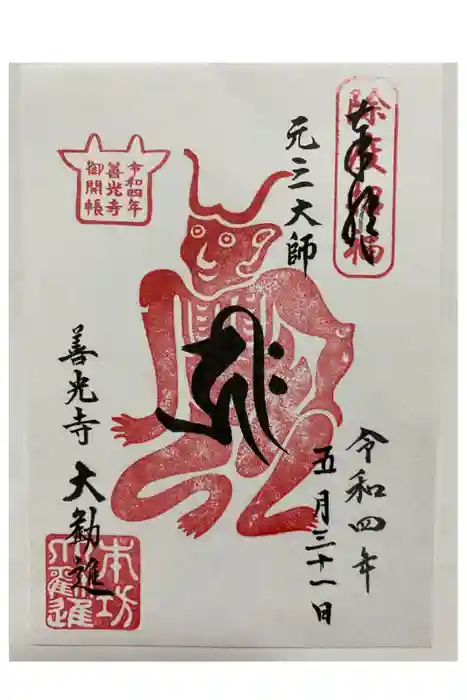 除災招福
奉拝
元三大師
令和四年
善光寺
御開帳
令和四年
五月三十一日
善光寺 大勧進
本坊
大勧進